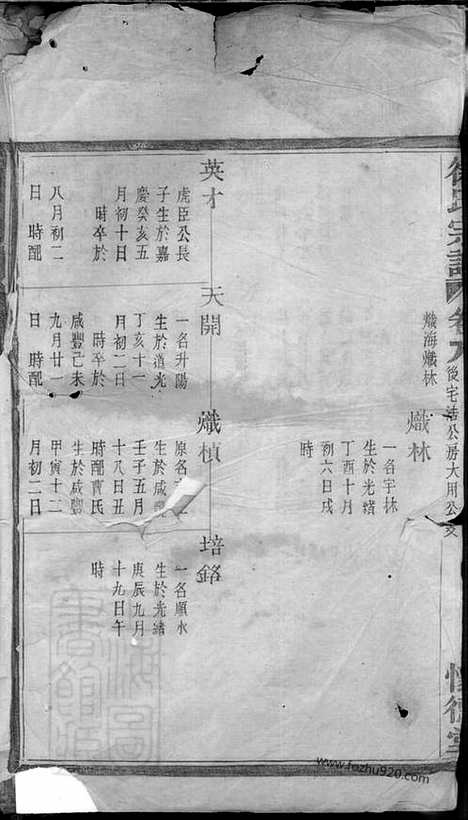 氏宗譜
卷九
後宅
公房大用公支
熾海熾林
熾林
一名宇林
生於光緒
丁酉十月
初六日戌
時
英才
虎臣公長
子生於嘉
慶癸亥五
月初十日
時卒於
八月初二
日 時配
天開
一名升陽
生於道光
丁亥十一
月初二日
時卒於
咸豐己未
九月廿一
日 時配
熾楨
原名
生於咸
壬子五月
十八日丑
時配曹氏
生於咸豐
甲寅十二
月初二日
培銘
一名順水
生於光緒
庚辰九月
十九日午
時
www.fozhu920.com